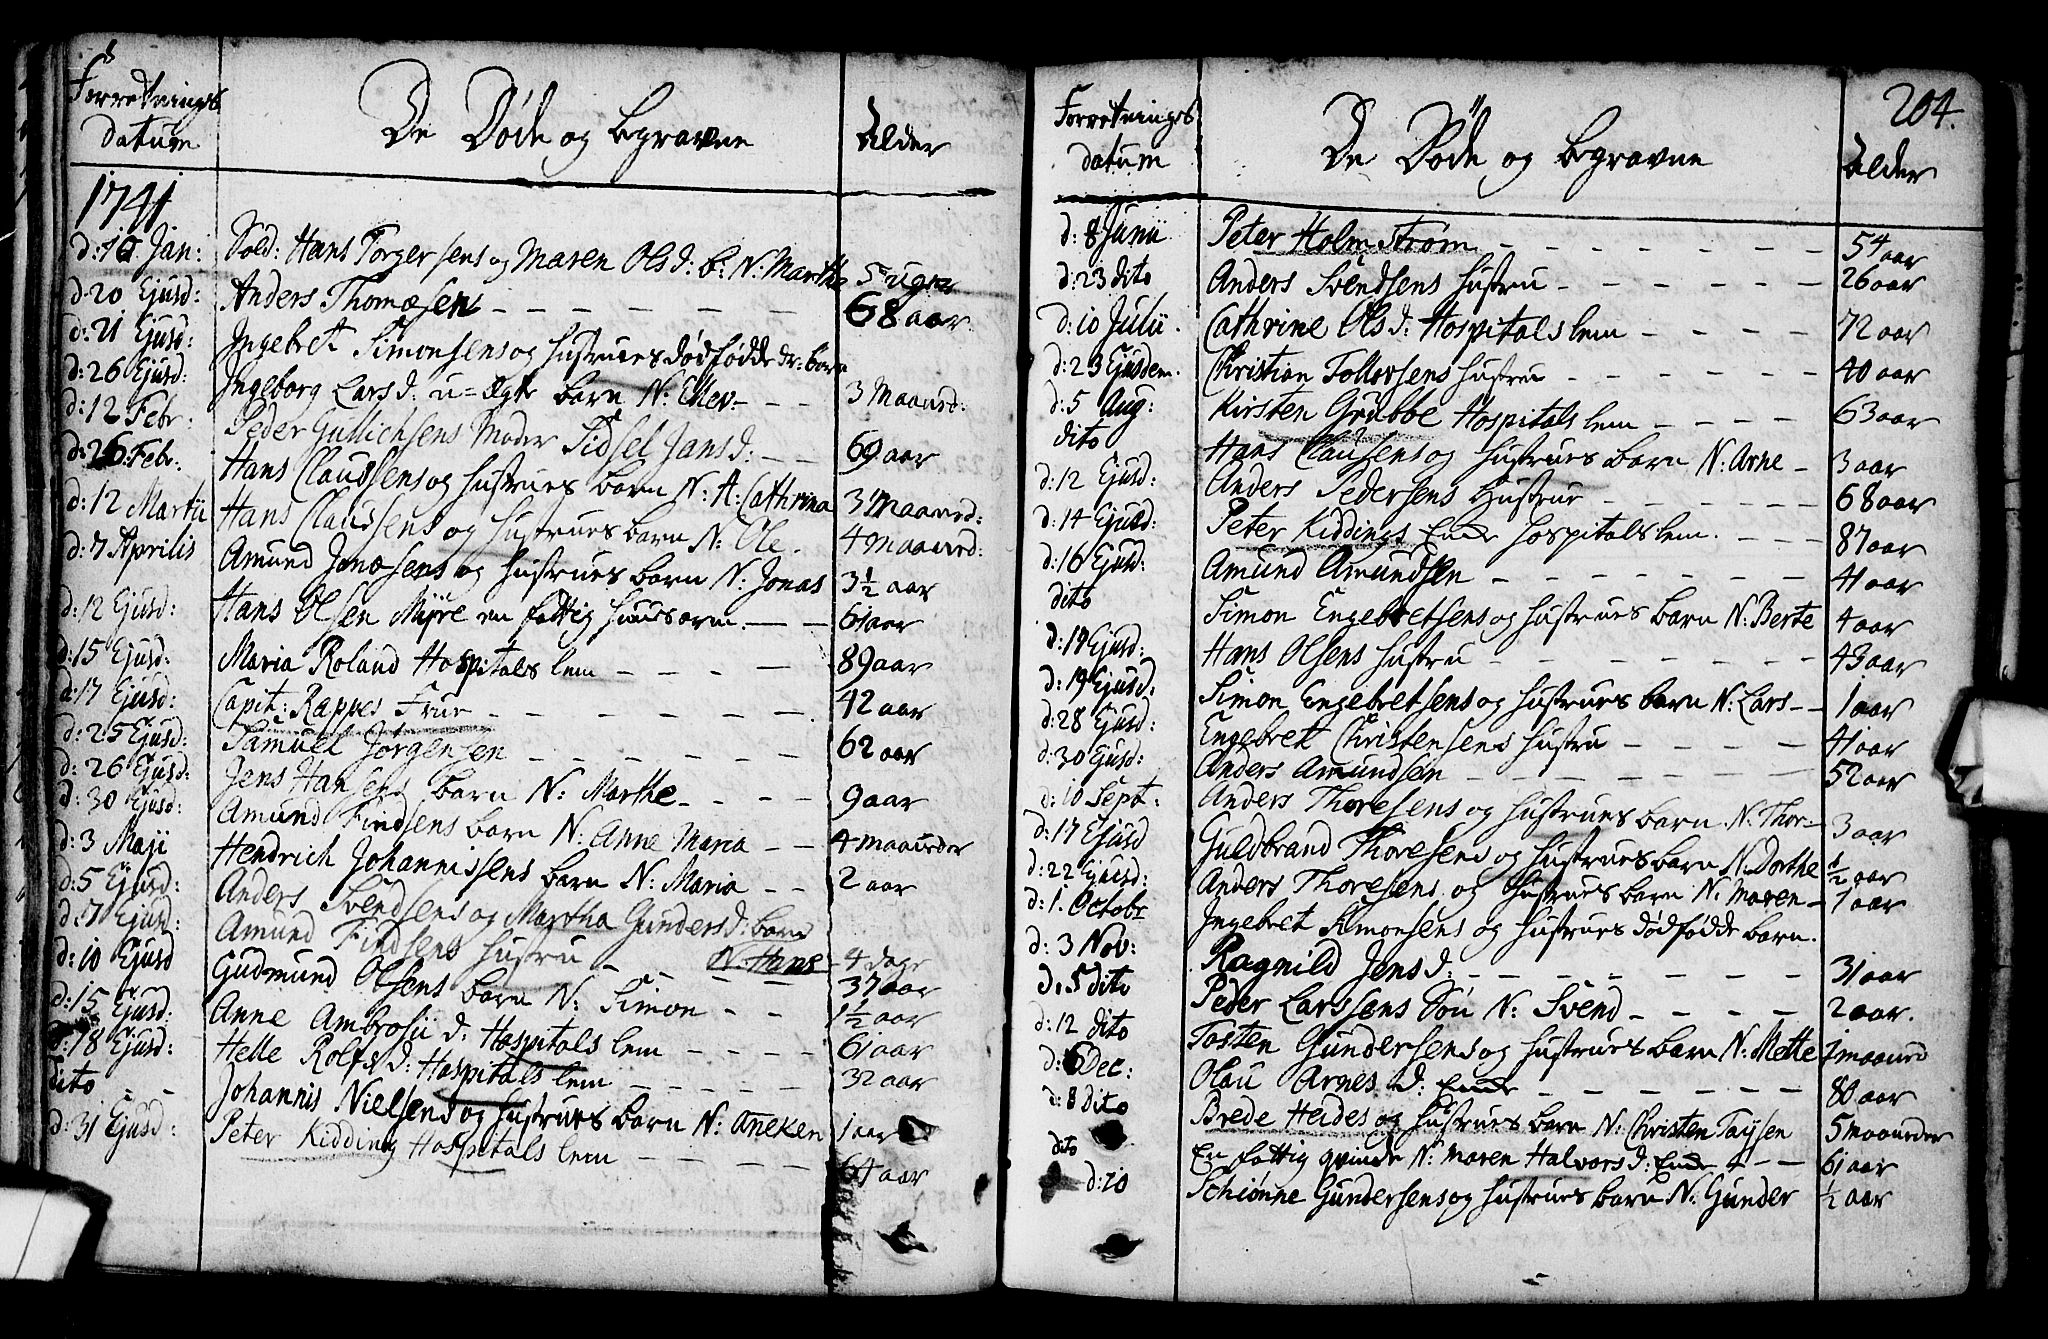 Forretnings
datum
De Döde og begravne
Alder
1741
d: 10 Jan: Sold: Hans Torgersens og Maren Olsd: b: N: Marthe 5 uger
d: 20 Ejusd: Anders Thomæsen - - - - - - 68 aar.
d: 21 Ejusd: Ingebret Simonsens og Hustrues dødfødde dr: barn
d: 26 Ejusd: Ingeborg Larsd: u=ægte barn N: Ellev. - - - 3 Maaned:
d: 12 Febr: Peder Gullichsens Moder Sidsel Jansd: - - 69 aar
d: 26 Febr. Hans Claussens og Hustrues barn N: A: Cathrina 3 Maaned:
d: 12 Martii Hans Claussens og Hustrues barn N: Ole. 4 Maaned:
d: 7 Aprilis Amund Jonæsens og Hustrues barn N: Jonas 3½ aar
d: 12 Ejusd: Hans Olsen Myre en fattig huusarm. - - 61 aar
d: 15 Ejusd: Maria Roland Hospitals lem - - - - 89 aar
d: 17 Ejusd: Capit: Rappes Frue - - - - - - 42 aar
d: 25 Ejusd: Samuel Jørgensen - - - - - - 62 aar
d: 26 Ejusd: Jens Hansens barn N: Marthe - - - - 9 aar
d: 30 Ejusd: Amund Findsens barn N: Anne Maria - - 4 maaneder
d: 3 Maji Hendrich Johannissens barn N: Maria - - 2 aar
d: 5 Ejusd: Anders Svendsens og Martha Gundersd: barn
N: Hans - 4 dage
d: 7 Ejusd: Amund Findsens Hustru - - - - 37 aar
d: 10 Ejusd Gudmund Olsens barn N: Simon - - 1½ aar
d: 15 Ejusd: Anne Ambrosii d: Hospitals lem - - - - 61 aar
d: 18 Ejusd: Helle Rolfsd: Hospitals lem - - - - - 32 aar
Dito - - Johannis Nielsens og Hustrues barn N: Anneken 1 aar
d: 31 Ejusd: Peter Kidding Hospitals lem - - - - - 64 aar
204.
Forretnings
datum
De Döde og begravne
Alder
d: 8 Junii Peter Holmstrøm - - - - - - 54 aar
d: 23 dito Anders Svendsens Hustru - - - - - 26 aar
d: 10 Julii. Cathrine Olsd: Hospitals lem - - - - 72 aar
d: 23 Ejusdem. Christian Follevsens Hustru - - - - - 40 aar
d: 5 Aug: Kirsten Grubbe Hospitals lem - - - - 63 aar
dito Hans Clausens og Hustrues barn N: Arne - 3 aar
d: 12 Ejusd: Anders Pedersens Hustrue - - - - - 68 aar
d: 14 Ejusd: Peter Kiddings Encke Hospitals lem. - - - 87 aar
d: 16 Ejusd: Amund Amundsen - - - - - - 41 aar
dito Simon Engebretsens og Hustrues barn N: Berte 4 aar
d: 17 Ejusd: Hans Olsens Hustru - - - - - - 43 aar
d: 19 Ejusd: Simon Engebretsens og Hustrues barn N: Lars - - 1 aar
d: 28 Ejusd: Engebret Christensens Hustru - - - - 41 aar
d: 30 Ejusd: Anders Amundsen - - - - - - 52 aar
d: 10 Sept: Anders Thoresens og Hustrues barn N: Thor - 3 aar
d: 17 Ejusd Guldbrand Thoresens og Hustrues barn N: Dorthe ½ aar
d: 22 Ejusd: Anders Thoresens og Hustrues barn N: Maren - 1 aar
d: 1. Octobr Ingebret Simonsens og Hustrues dødfødde barn.
d: 3 Nov: Ragnild Jensd: - - - - - - 31 aar
d. 5 dito Peder Larssens Søn N: Svend - - - - 2 aar.
d: 12 dito Tosten Gundersens og Hustrues barn N: Mette 1 maaned
d: 6 Dec: Olau Arnes d: Encke - - - - - - 80 aar
d: 8 dito Brede Heides og Hustrues barn N: Christen Taysen 5 maaneder
dito En fattig qvinde N: Maren Halvorsd: Encke - - - 61 aar
d: 10 Schiønne Gundersens og Hustrues barn N: Gunder ½ aar